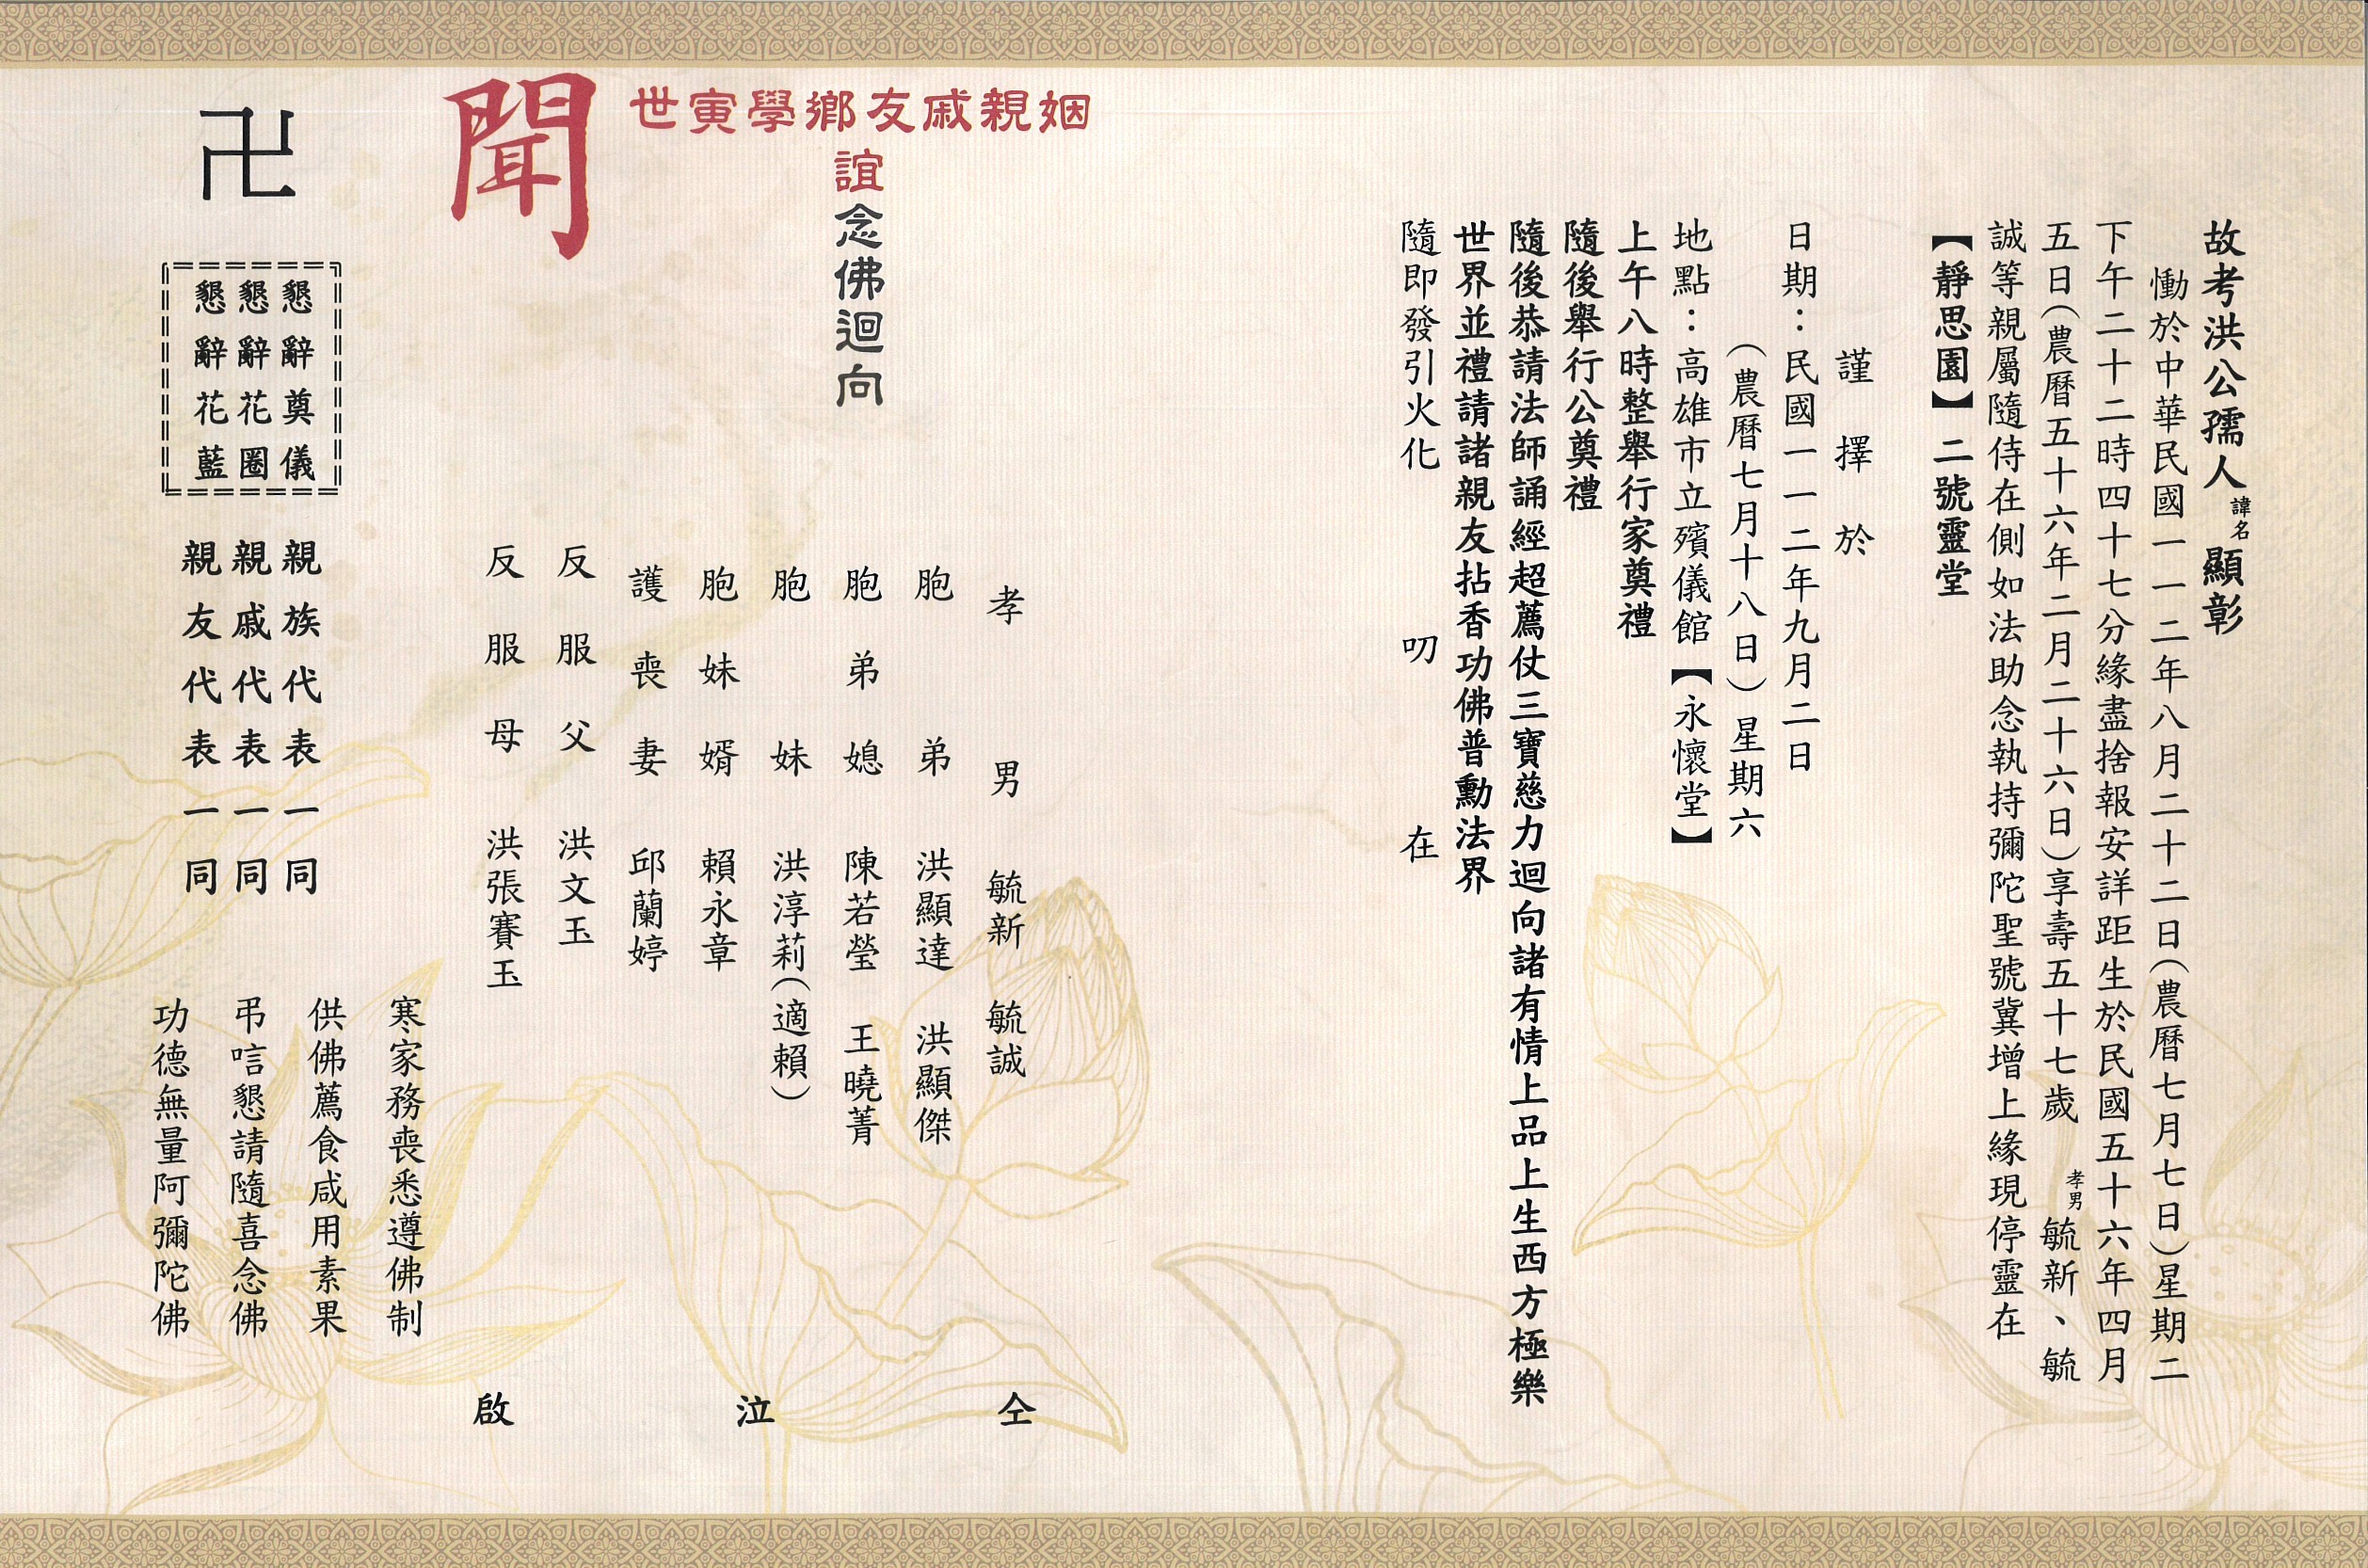 故考洪公孺人諱名顯彰
慟於中華民國一一二年八月二十二日(農曆七月七日)星期二
下午二十二時四十七分緣盡捨報安詳距生於民國五十六年四月
五日(農曆五十六年二月二十六日)享壽五十七歲 孝男 毓新、毓
誠等親屬隨侍在側如法助念執持彌陀聖號冀增上緣現停靈在
【靜思園】二號靈堂
謹擇於
日期：民國一一二年九月二日
(農曆七月十八日)星期六
地點：高雄市立殯儀館【永懷堂】
上午八時整舉行家奠禮
隨後舉行公奠禮
隨後恭請法師誦經超薦仗三寶慈力迴向諸有情上品上生西方極樂
世界並禮請諸親友拈香功佛普勳法界
隨即發引火化 叨在
姻親戚友鄉學寅世
誼念佛迴向
聞
孝男 毓新 毓誠
胞弟 洪顯達 洪顯傑
胞弟媳 陳若瑩 王曉菁
胞妹 洪淳莉(適賴)
胞妹婿 賴永章
護喪妻 邱蘭婷
反服父 洪文玉
反服母 洪張賽玉
仝泣啟
寒家務喪悉遵佛制
供佛薦食咸用素果
弔唁懇請隨喜念佛
功德無量阿彌陀佛
卍
懇辭奠儀
懇辭花圈
懇辭花藍
親族代表一同
親戚代表一同
親友代表一同